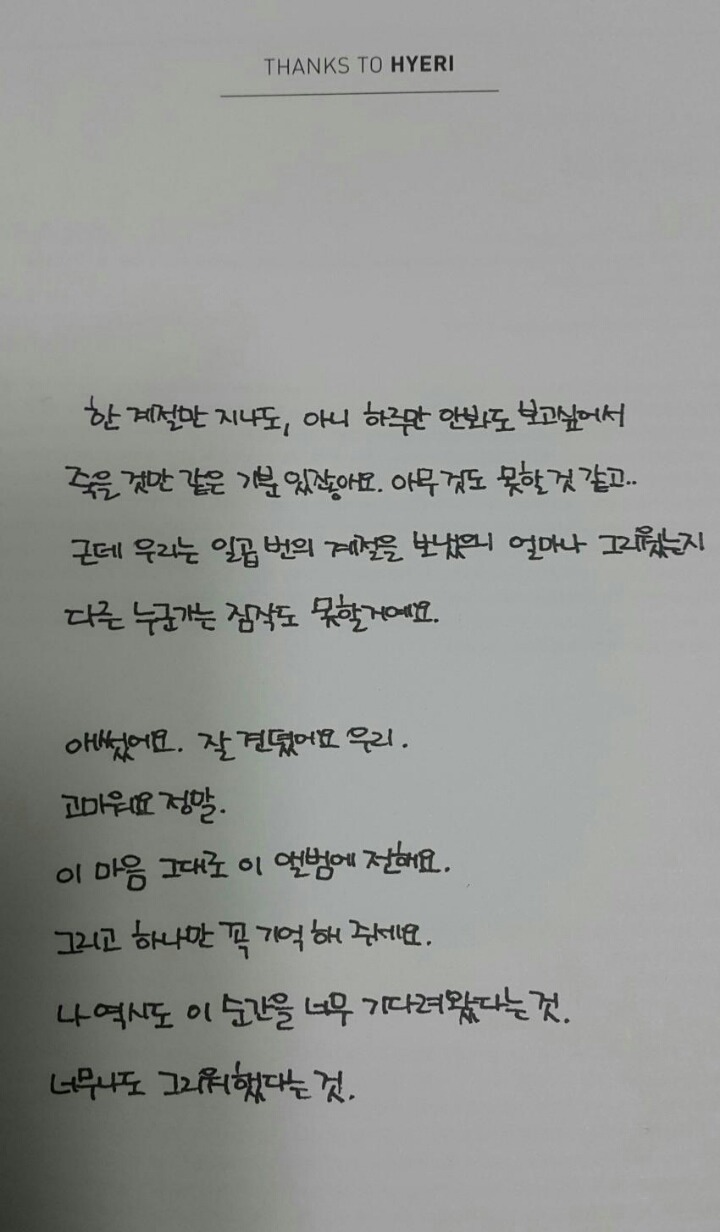 THANKS TO HYERI
한 계절만 지나도, 아니 하루만 안봐도 보고싶어서
죽을 것만 같은 기분 있잖아요. 아무것도 못할것 같고..
근데 우리는 일곱 번의 계절을 보냈으니 얼마나 그리웠는지
다른 누군가는 짐작도 못할거예요.
애썼어요. 잘 견뎠어요 우리.
고마워요 정말.
이 마음 그대로 이 앨범에 전해요.
그리고 하나만 꼭 기억해 주세요.
나 역시도 이 순간을 너무 기다려왔다는 것.
너무나도 그리워했다는 것.